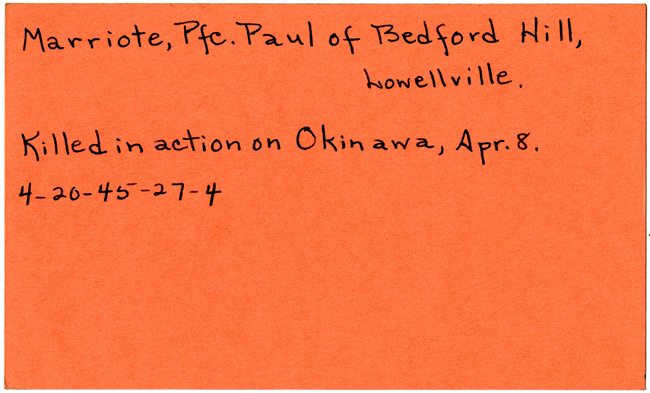 Marriote, Pfc. Paul of Bedford Hill,
Lowellville.
Killed in action on Okinawa, Apr. 8.
4-20-45-27-4